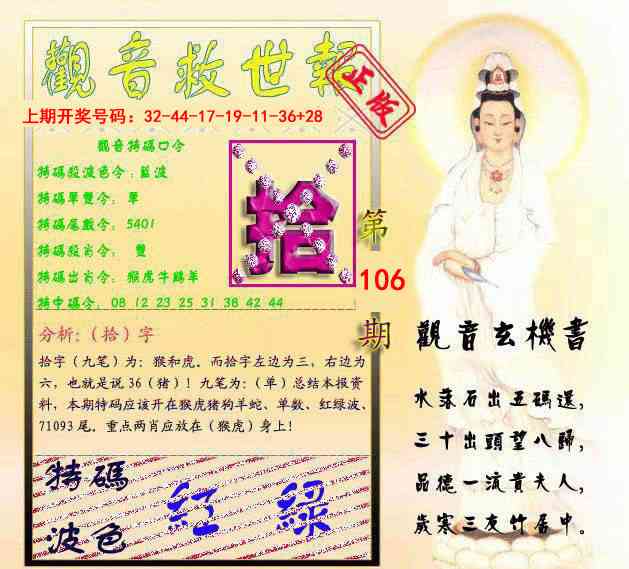 觀音救世報
正版
上期开奖号码：32-44-17-19-11-36+28
觀音特碼口令
特碼殺波色令：藍波
特碼單雙令： 單
特碼尾數令： 5401
特碼殺肖令： 雙
特碼出肖令： 猴虎牛鷄羊
特中碼令： 08 12 23 25 31 38 42 44
拾
第
106
期
分析：（拾）字
拾字（九笔）为：猴和虎。而拾字左边为三，右边为
六，也就是说 36（猪）！九笔为：（单）总结本报资
料，本期特码应该开在猴虎猪狗羊蛇、单数、红绿波、
71093 尾。重点两肖应放在（猴虎）身上！
特碼
波色
紅 綠
觀音玄機書
水落石出五碼選，
三十出頭望八歸，
品德一流貴夫人，
歲寒三友竹居中。